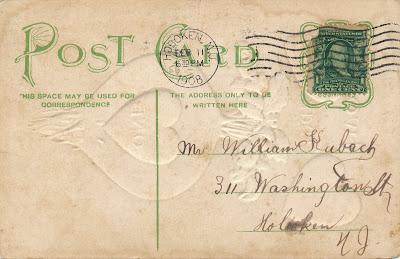 POST CARD
HOBOKEN, N.J.
FEB 11
6 30 PM
1908
THIS SPACE MAY BE USED FOR
CORRESPONDENCE
THE ADDRESS ONLY TO BE
WRITTEN HERE
Mr William Kubach
311 Washington St
Hoboken
N J.